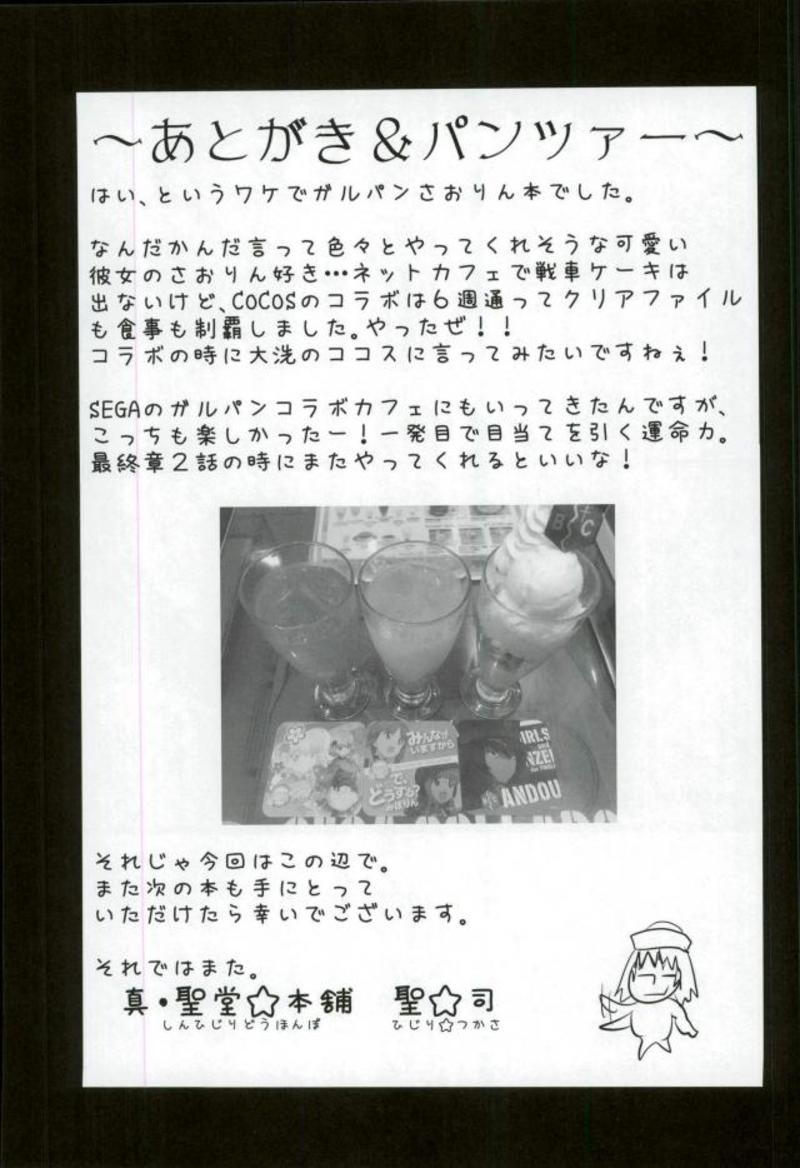 ～あとがき＆パンツァー～
はい、というワケでガルパンさおりん本でした。
なんだかんだ言って色々とやってくれそうな可愛い
彼女のさおりん好き…ネットカフェで戦車ケーキは
出ないけど、COCOSのコラボは６週通ってクリアファイル
も食事も制覇しました。やったぜ！！
コラボの時に大洗のココスに言ってみたいですねぇ！
SEGAのガルパンコラボカフェにもいってきたんですが、
こっちも楽しかったー！一発目で目当てを引く運命力。
最終章２話の時にまたやってくれるといいな！
B
C
みんなが
いますから
で、
どうする？
みほりん
ANDOU
それじゃ今回はこの辺で。
また次の本も手にとって
いただけたら幸いでございます。
それではまた。
真・聖堂☆本舗　聖☆司
しんひじりどうほんぽ　ひじり☆つかさ